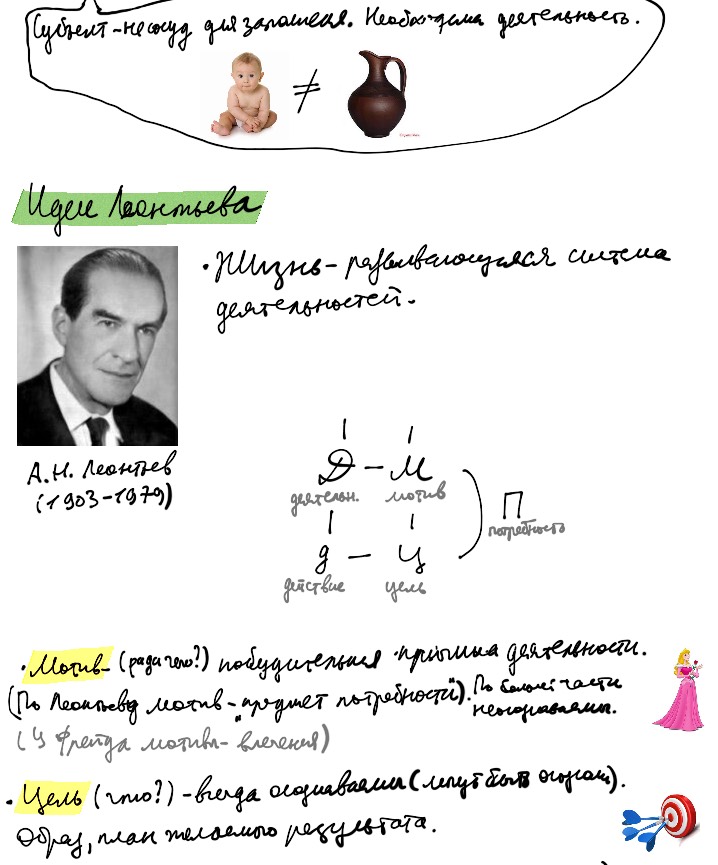 Субъект – не сосуд для заполнения. Необходима деятельность.
≠
Идеи Леонтьева
• Жизнь – развивающаяся система
деятельностей.
А.Н. Леонтьев
(1903–1979)
Д – М
деятельн. мотив
П
потребность
д – Ц
действие цель
• Мотив – (ради чего?) побудительная причина деятельности.
(По Леонтьеву мотив – "предмет потребности"). По большей части
неосознаваемы.
(У Фрейда мотивы – влечения)
• Цель (что?) – всегда осознаваемы (могут быть осознан).
Образ, план желаемого результата.